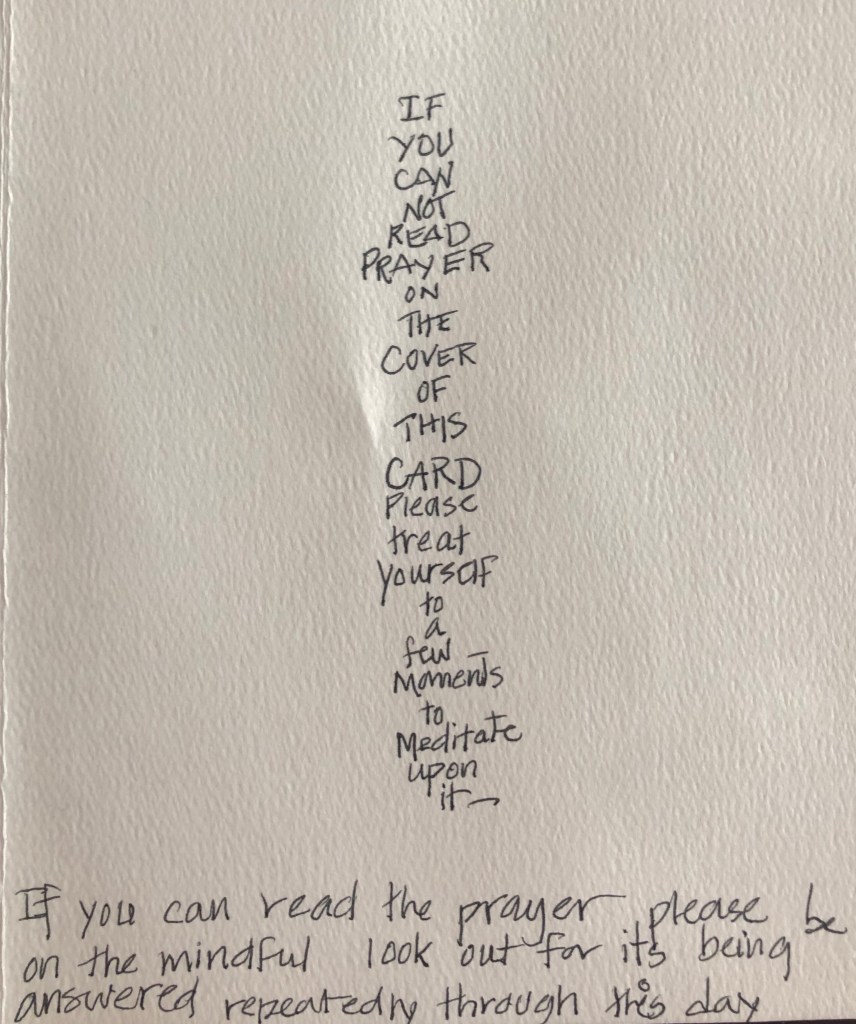 IF
YOU
CAN
NOT
READ
PRAYER
ON
THE
COVER
OF
THIS
CARD
Please
treat
yourself
to
a
few
Moments
to
Meditate
upon
it
If you can read the prayer please be
on the mindful look out for its being
answered repeatedly through this day